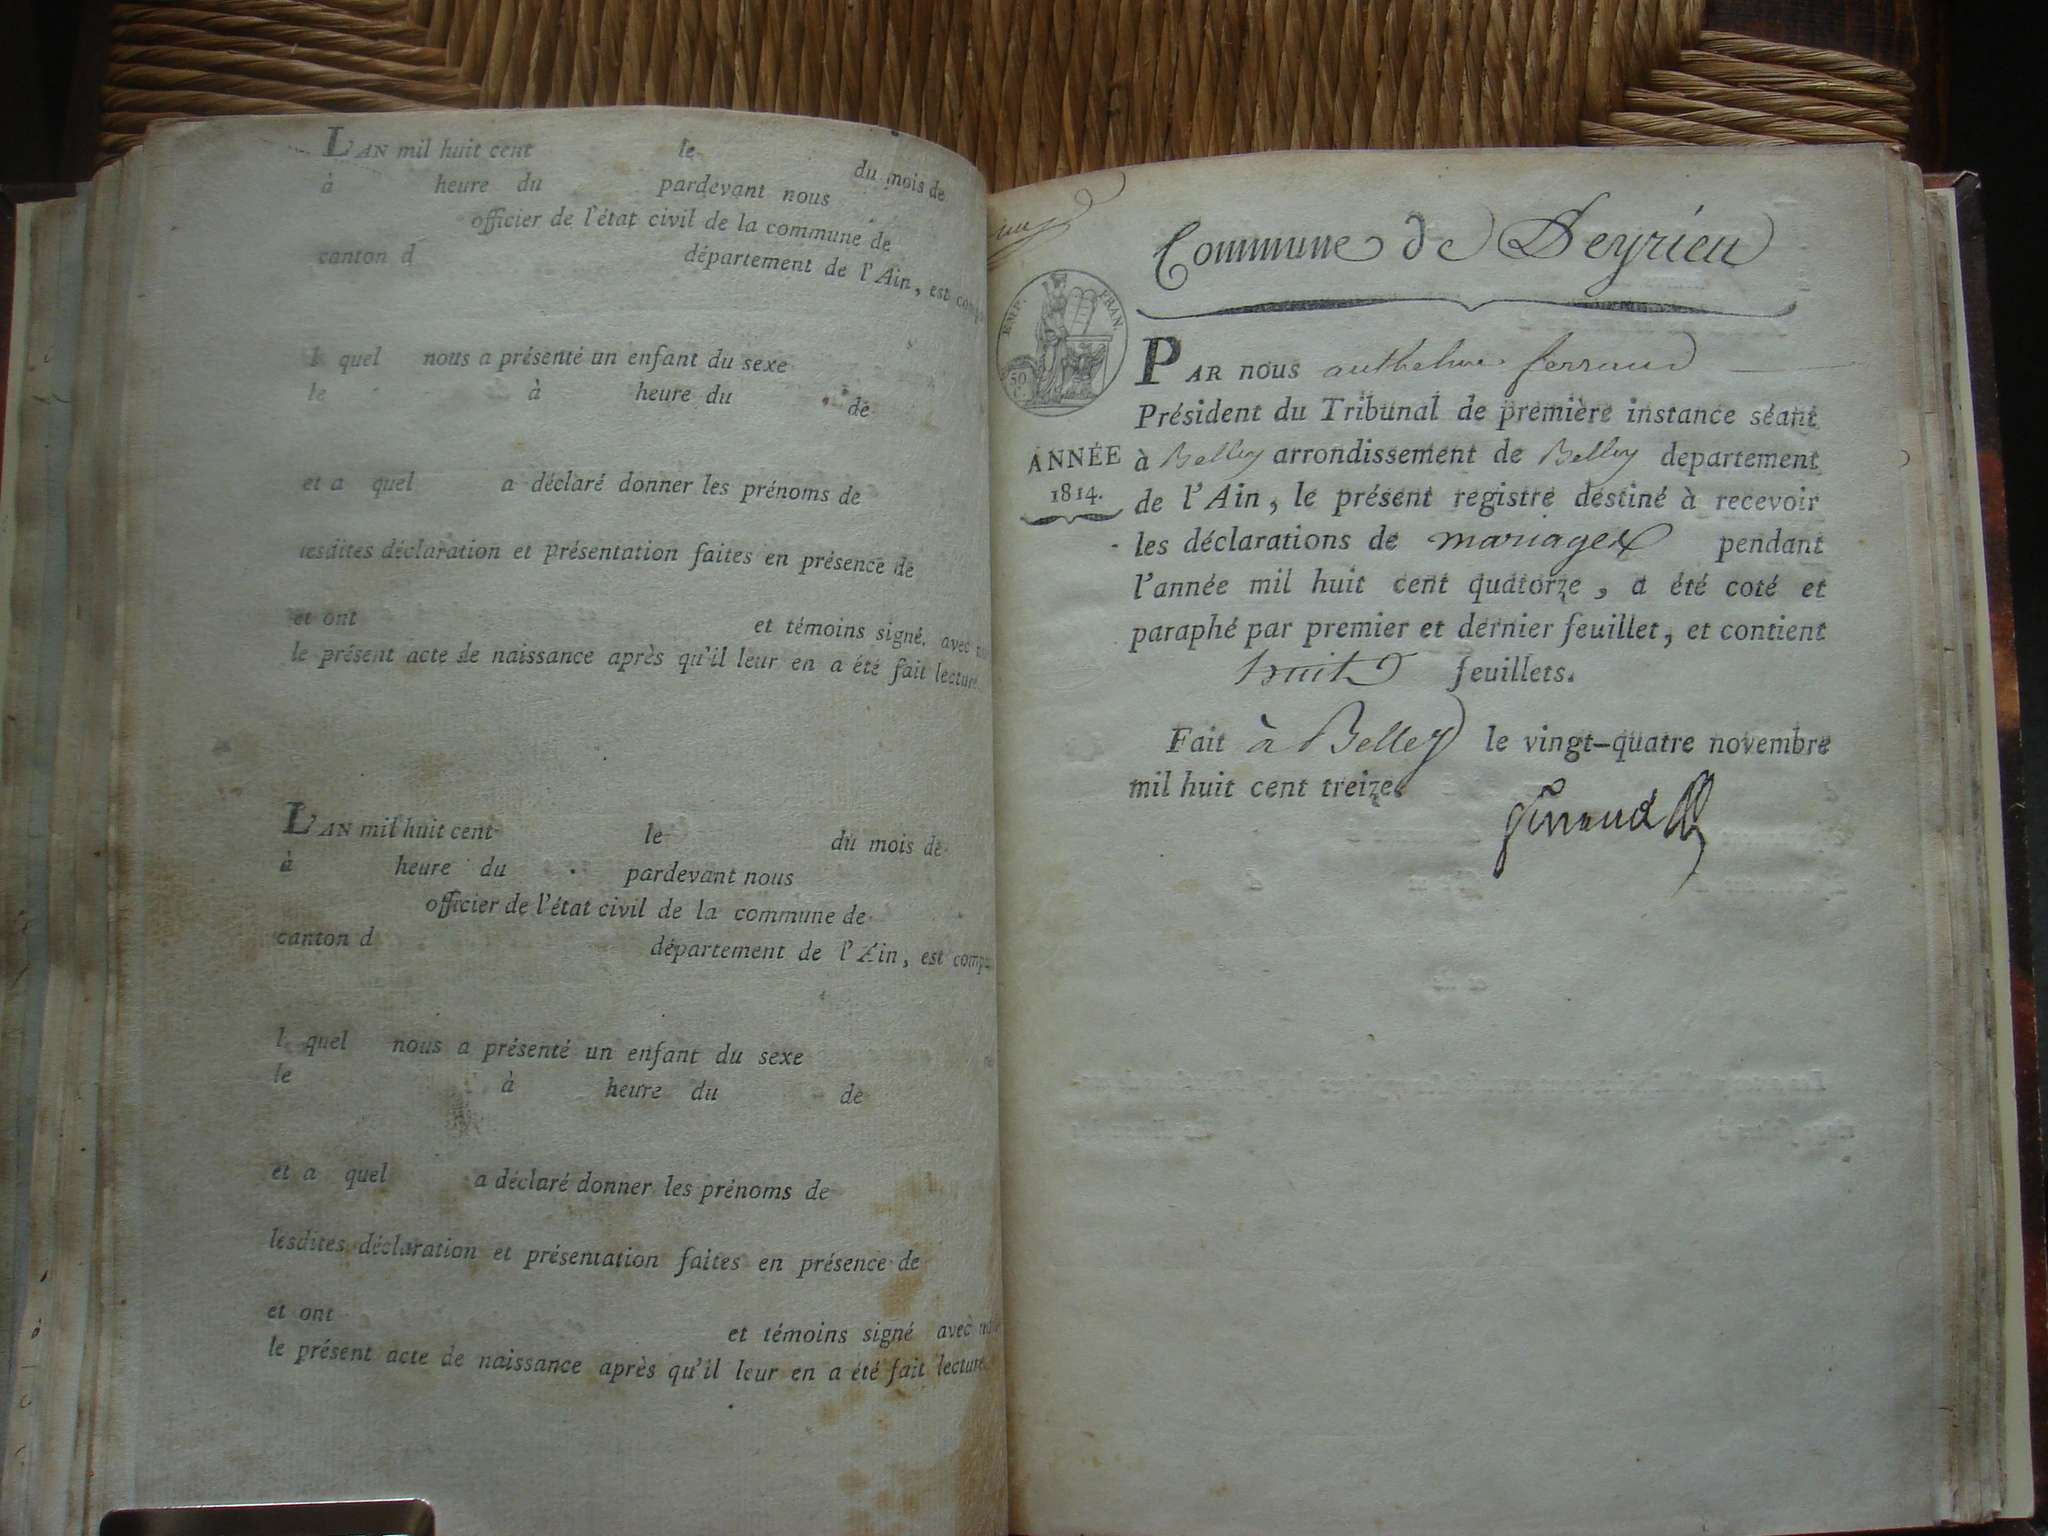 LAN mil huit cent le du mois de
à heure du pardevant nous
officier de l'état civil de la commune de
canton d département de l'Ain, est
l quel nous a présenté un enfant du sexe
le à heure du de
et a quel a déclaré donner les prénoms de
lesdites déclaration et présentation faites en présence de
et ont et témoins signé, avec
le présent acte de naissance après qu'il leur en a été fait lecture
LAN mil huit cent le du mois de
à heure du pardevant nous
officier de l'état civil de la commune de
canton d département de l'Ain, est
l quel nous a présenté un enfant du sexe
le à heure du de
et a quel a déclaré donner les prénoms de
lesdites déclaration et présentation faites en présence de
et ont et témoins signé avec
le présent acte de naissance après qu'il leur en a été fait lecture.
Commune de Peyrieu
EMP. FRAN.
50
ANNÉE
1814.
PAR nous anthelme ferrand
Président du Tribunal de première instance séant
à Belley arrondissement de Belley departement
de l'Ain, le présent registre destiné à recevoir
les déclarations de mariages pendant
l'année mil huit cent quatorze, a été coté et
paraphé par premier et dernier feuillet, et contient
huit feuillets.
Fait à Belley le vingt-quatre novembre
mil huit cent treize.